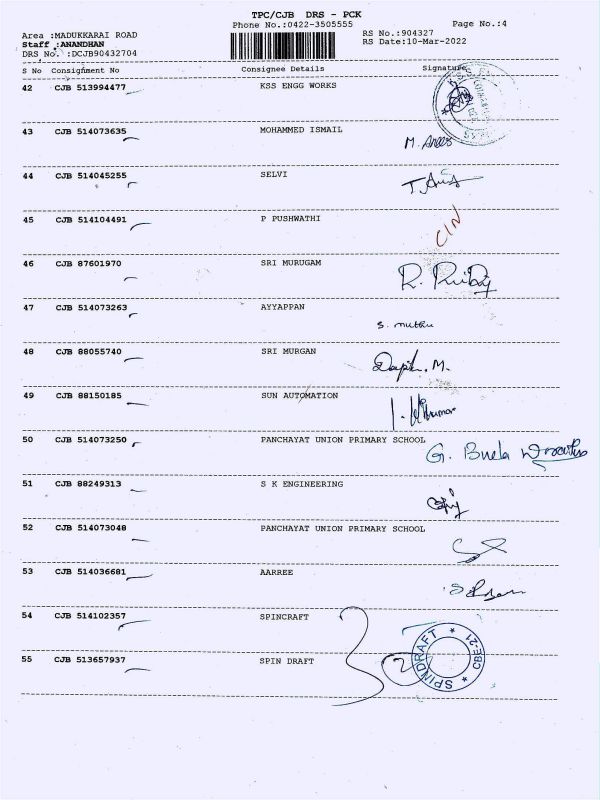 TPC/CJB DRS - PCK
Phone No.:0422-3505555
Page No.:4
Area :MADUKKARAI ROAD
RS No.:904327
Staff :ANANDHAN
RS Date:10-Mar-2022
DRS No. :DCJB90432704
S No Consignment No Consignee Details Signature
42 CJB 513994477 KSS ENGG WORKS
43 CJB 514073635 MOHAMMED ISMAIL
M. Anees
44 CJB 514045255 SELVI
45 CJB 514104491 P PUSHWATHI
C/N
46 CJB 87601970 SRI MURUGAM
47 CJB 514073263 AYYAPPAN
S. muthu
48 CJB 88055740 SRI MURGAN
49 CJB 88150185 SUN AUTOMATION
50 CJB 514073250 PANCHAYAT UNION PRIMARY SCHOOL
51 CJB 88249313 S K ENGINEERING
52 CJB 514073048 PANCHAYAT UNION PRIMARY SCHOOL
53 CJB 514036681 AARREE
54 CJB 514102357 SPINCRAFT
55 CJB 513657937 SPIN DRAFT
SPINDRAFT * CBE-21 *